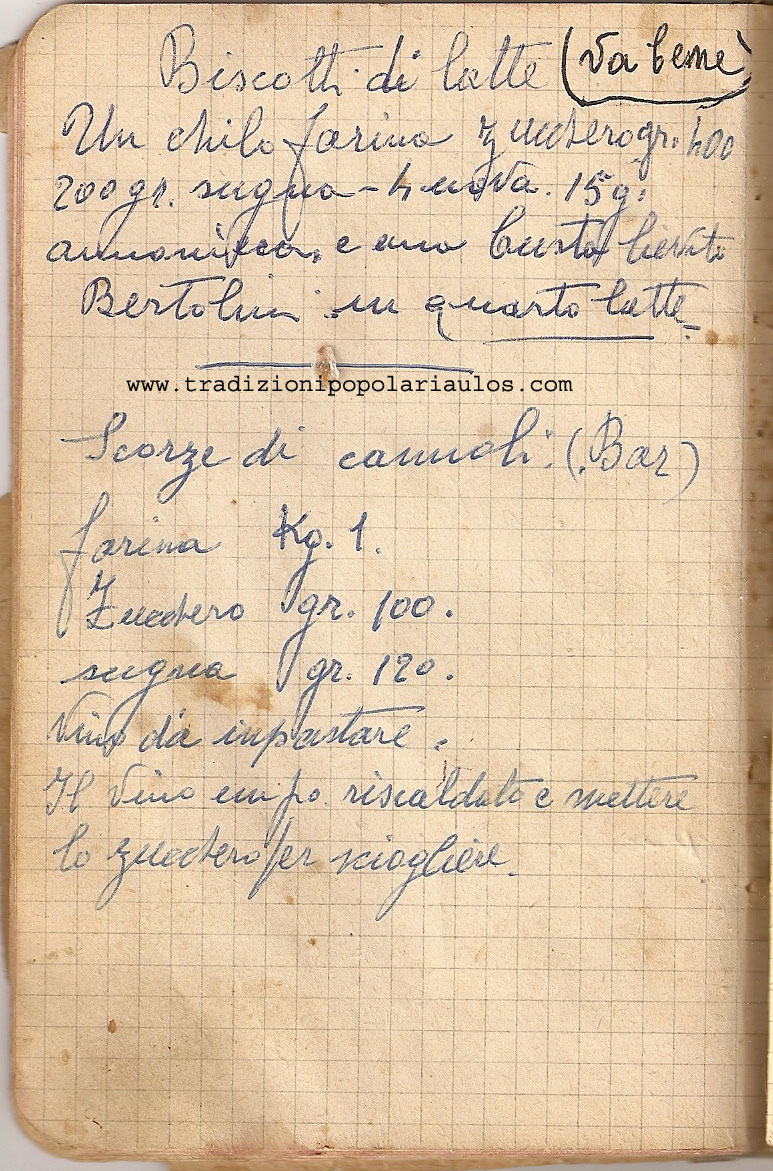 Biscotti di latte (va bene)
Un chilo farina zucchero gr. 400
200 gr. sugna - 4 uova. 15 g.
ammoniaca, e una busta lievito
Bertolini un quarto latte
www.tradizionipopolariaulos.com
Scorze di cannoli. (Bar)
farina Kg. 1.
Zucchero gr. 100.
sugna gr. 120.
Vino da impastare.
Il vino un po riscaldato e mettere
lo zucchero per sciogliere.